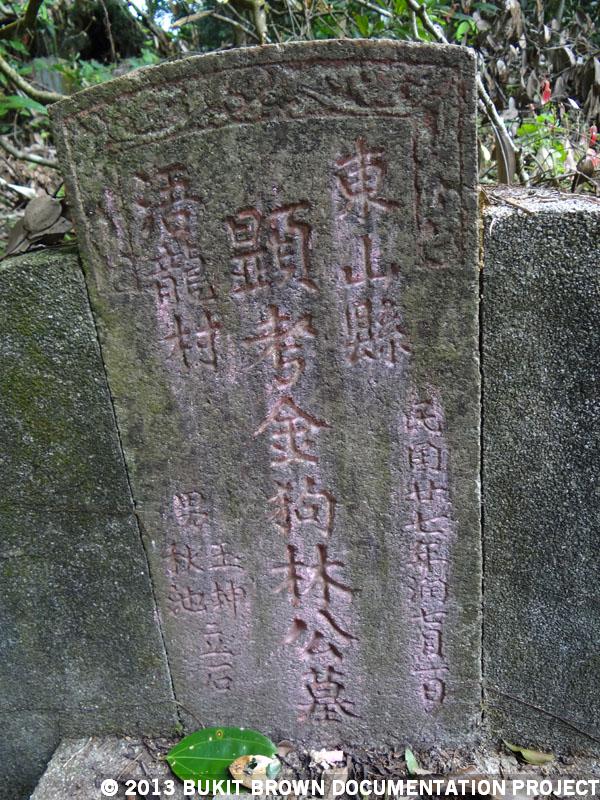 東山縣
民國廿七年潤七月二日
顯考金狗林公墓
浯龍村
男
玉坤
秋池
立石
© 2013 BUKIT BROWN DOCUMENTATION PROJECT